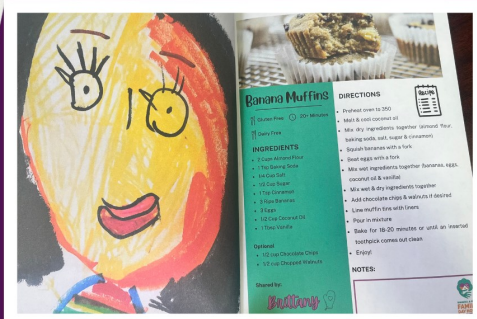 Banana Muffins
Gluten Free 20+ Minutes
Dairy Free
INGREDIENTS
2 Cups Almond Flour
1 Tsp Baking Soda
1/4 Cup Salt
1/2 Cup Sugar
1 Tsp Cinnamon
3 Ripe Bananas
3 Eggs
1/2 Cup Coconut Oil
1 Tbsp Vanilla
Optional
1/2 cup Chocolate Chips
1/2 cup Chopped Walnuts
Shared by:
Brittany
DIRECTIONS
RECIPE
Preheat oven to 350
Melt & cool coconut oil
Mix dry ingredients together (almond flour,
baking soda, salt, sugar & cinnamon)
Squish bananas with a fork
Beat eggs with a fork
Mix wet ingredients together (bananas, eggs,
coconut oil & vanilla)
Mix wet & dry ingredients together
Add chocolate chips & walnuts if desired
Line muffin tins with liners
Pour in mixture
Bake for 18-20 minutes or until an inserted
toothpick comes out clean
Enjoy!
NOTES: